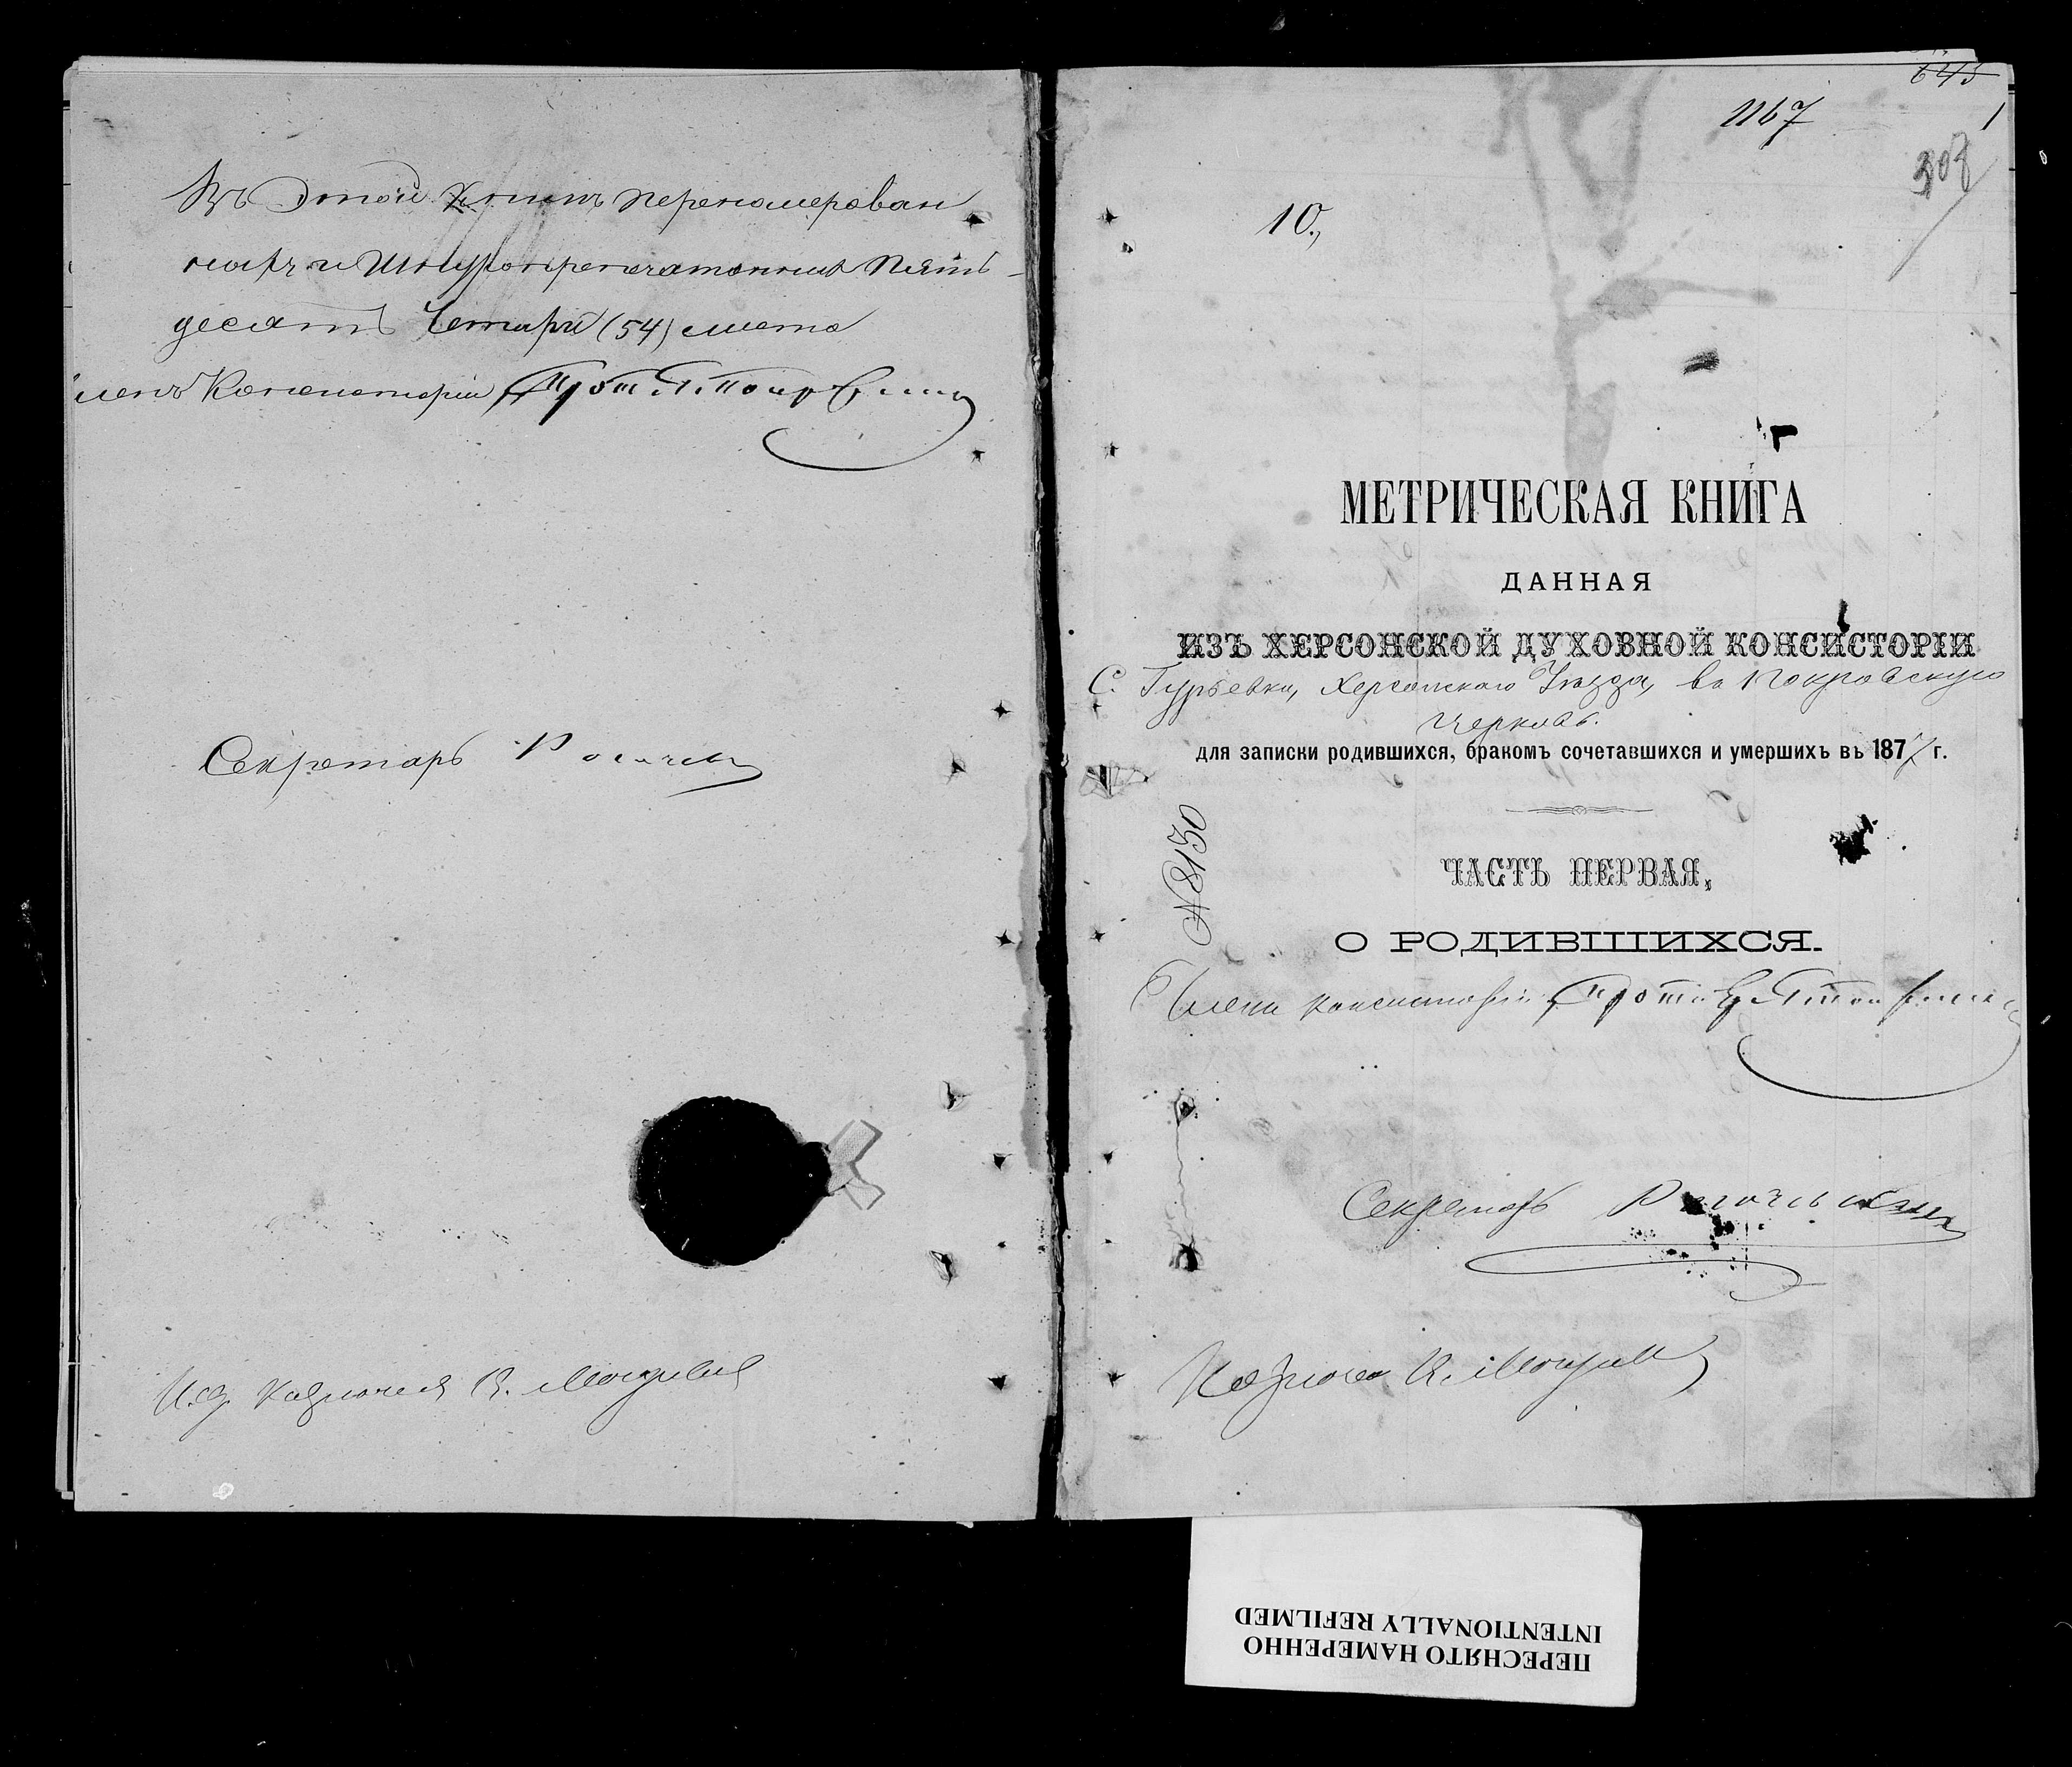 Въ этой книгѣ перенумерован
ныхъ и шнуропрепечатанныхъ пять-
десятъ четыри (54) листа
членъ Консисторіи Прот.
Секретарь
И. д. Казначея В.
645
1167
1
308
10.,
МЕТРИЧЕСКАЯ КНИГА
ДАННАЯ
ИЗЪ ХЕРСОНСКОЙ ДУХОВНОЙ КОНСИСТОРІИ
С. Гурьевки, Херсонскаго Уѣзда, въ Покровскую
церковь.
для записки родившихся, бракомъ сочетавшихся и умершихъ въ 1877 г.
№ 8130
ЧАСТЬ ПЕРВАЯ,
О РОДИВШИХСЯ.
Членъ Консисторіи Прот.
Секретарь
Казначей В.
ПЕРЕСНЯТО НАМЕРЕННО
INTENTIONALLY REFILMED